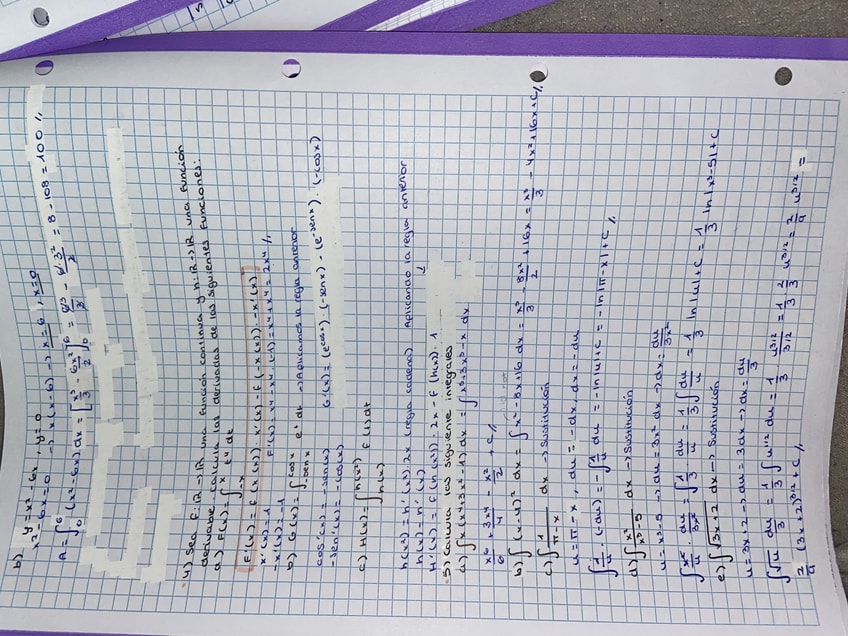 b) y = x² - 6x, y=0
x² - 6x = 0 → x(x-6) → x=6, x=0
A = ∫₀⁶ (x² - 6x) dx = [x³/3 - 6x²/2]₀⁶ = 6³/3 - 6·3²/2 = 8 - 108 = 100 //
4) Sea f: ℝ→ℝ una función continua y h: ℝ→ℝ una función
derivable calcula las derivadas de las siguientes funciones:
a) F(x) = ∫₋ₓˣ t⁴ dt
F'(x) = f(x(x))·x'(x) - f(-x(x))·-x'(x)
x'(x) = 1
-x'(x) = -1
F'(x) = x⁴ - x⁴·(-1) = x⁴ + x⁴ = 2x⁴ //
b) G(x) = ∫ₛₑₙₓ^cosx eᵗ dt → Aplicamos la regla anterior
cos'(x) = -sen(x)
-sen'(x) = -cos(x)
G'(x) = (e^cosx)·(-sen x) - (e^-senx)·(-cosx)
c) H(x) = ∫ h(x) h(x²) f(t) dt
h(x²) = h'(x²)·2x (regla cadena) Aplicando la regla anterior
h(x) = h'(x)
H'(x) = f(h(x²))·2x - f(h(x))·1
5) Calcula las siguiente integrales
a) ∫x(x⁴+3x²-1) dx = ∫x⁵+3x³-x dx
x⁶/6 + 3x⁴/4 - x²/2 + C //
b) ∫(x-4)² dx = ∫x² - 8x + 16 dx = x³/3 - 8x²/2 + 16x = x³/3 - 4x² + 16x + C //
c) ∫ 1/(π-x) dx → Sustitución
u = π - x, du = -dx, dx = -du
∫ 1/u · (-du) = -∫ 1/u du = -ln|u| + C = -ln|π-x| + C //
d) ∫ x²/(x³-5) dx → Sustitución
u = x³-5 → du = 3x² dx → dx = du/3x²
∫ x²/u · du/3x² = ∫ 1/u · du/3 = 1/3 ∫ du/u = 1/3 ln|u| + C = 1/3 ln|x³-5| + C
e) ∫√(3x-2) dx → Sustitución
u = 3x-2 → du = 3dx → dx = du/3
∫√u · du/3 = 1/3 ∫u^1/2 du = 1/3 · u^3/2 / 3/2 = 1/3 · 2/3 u^3/2 = 2/9 u^3/2 =
2/9 (3x+2)^3/2 + C //